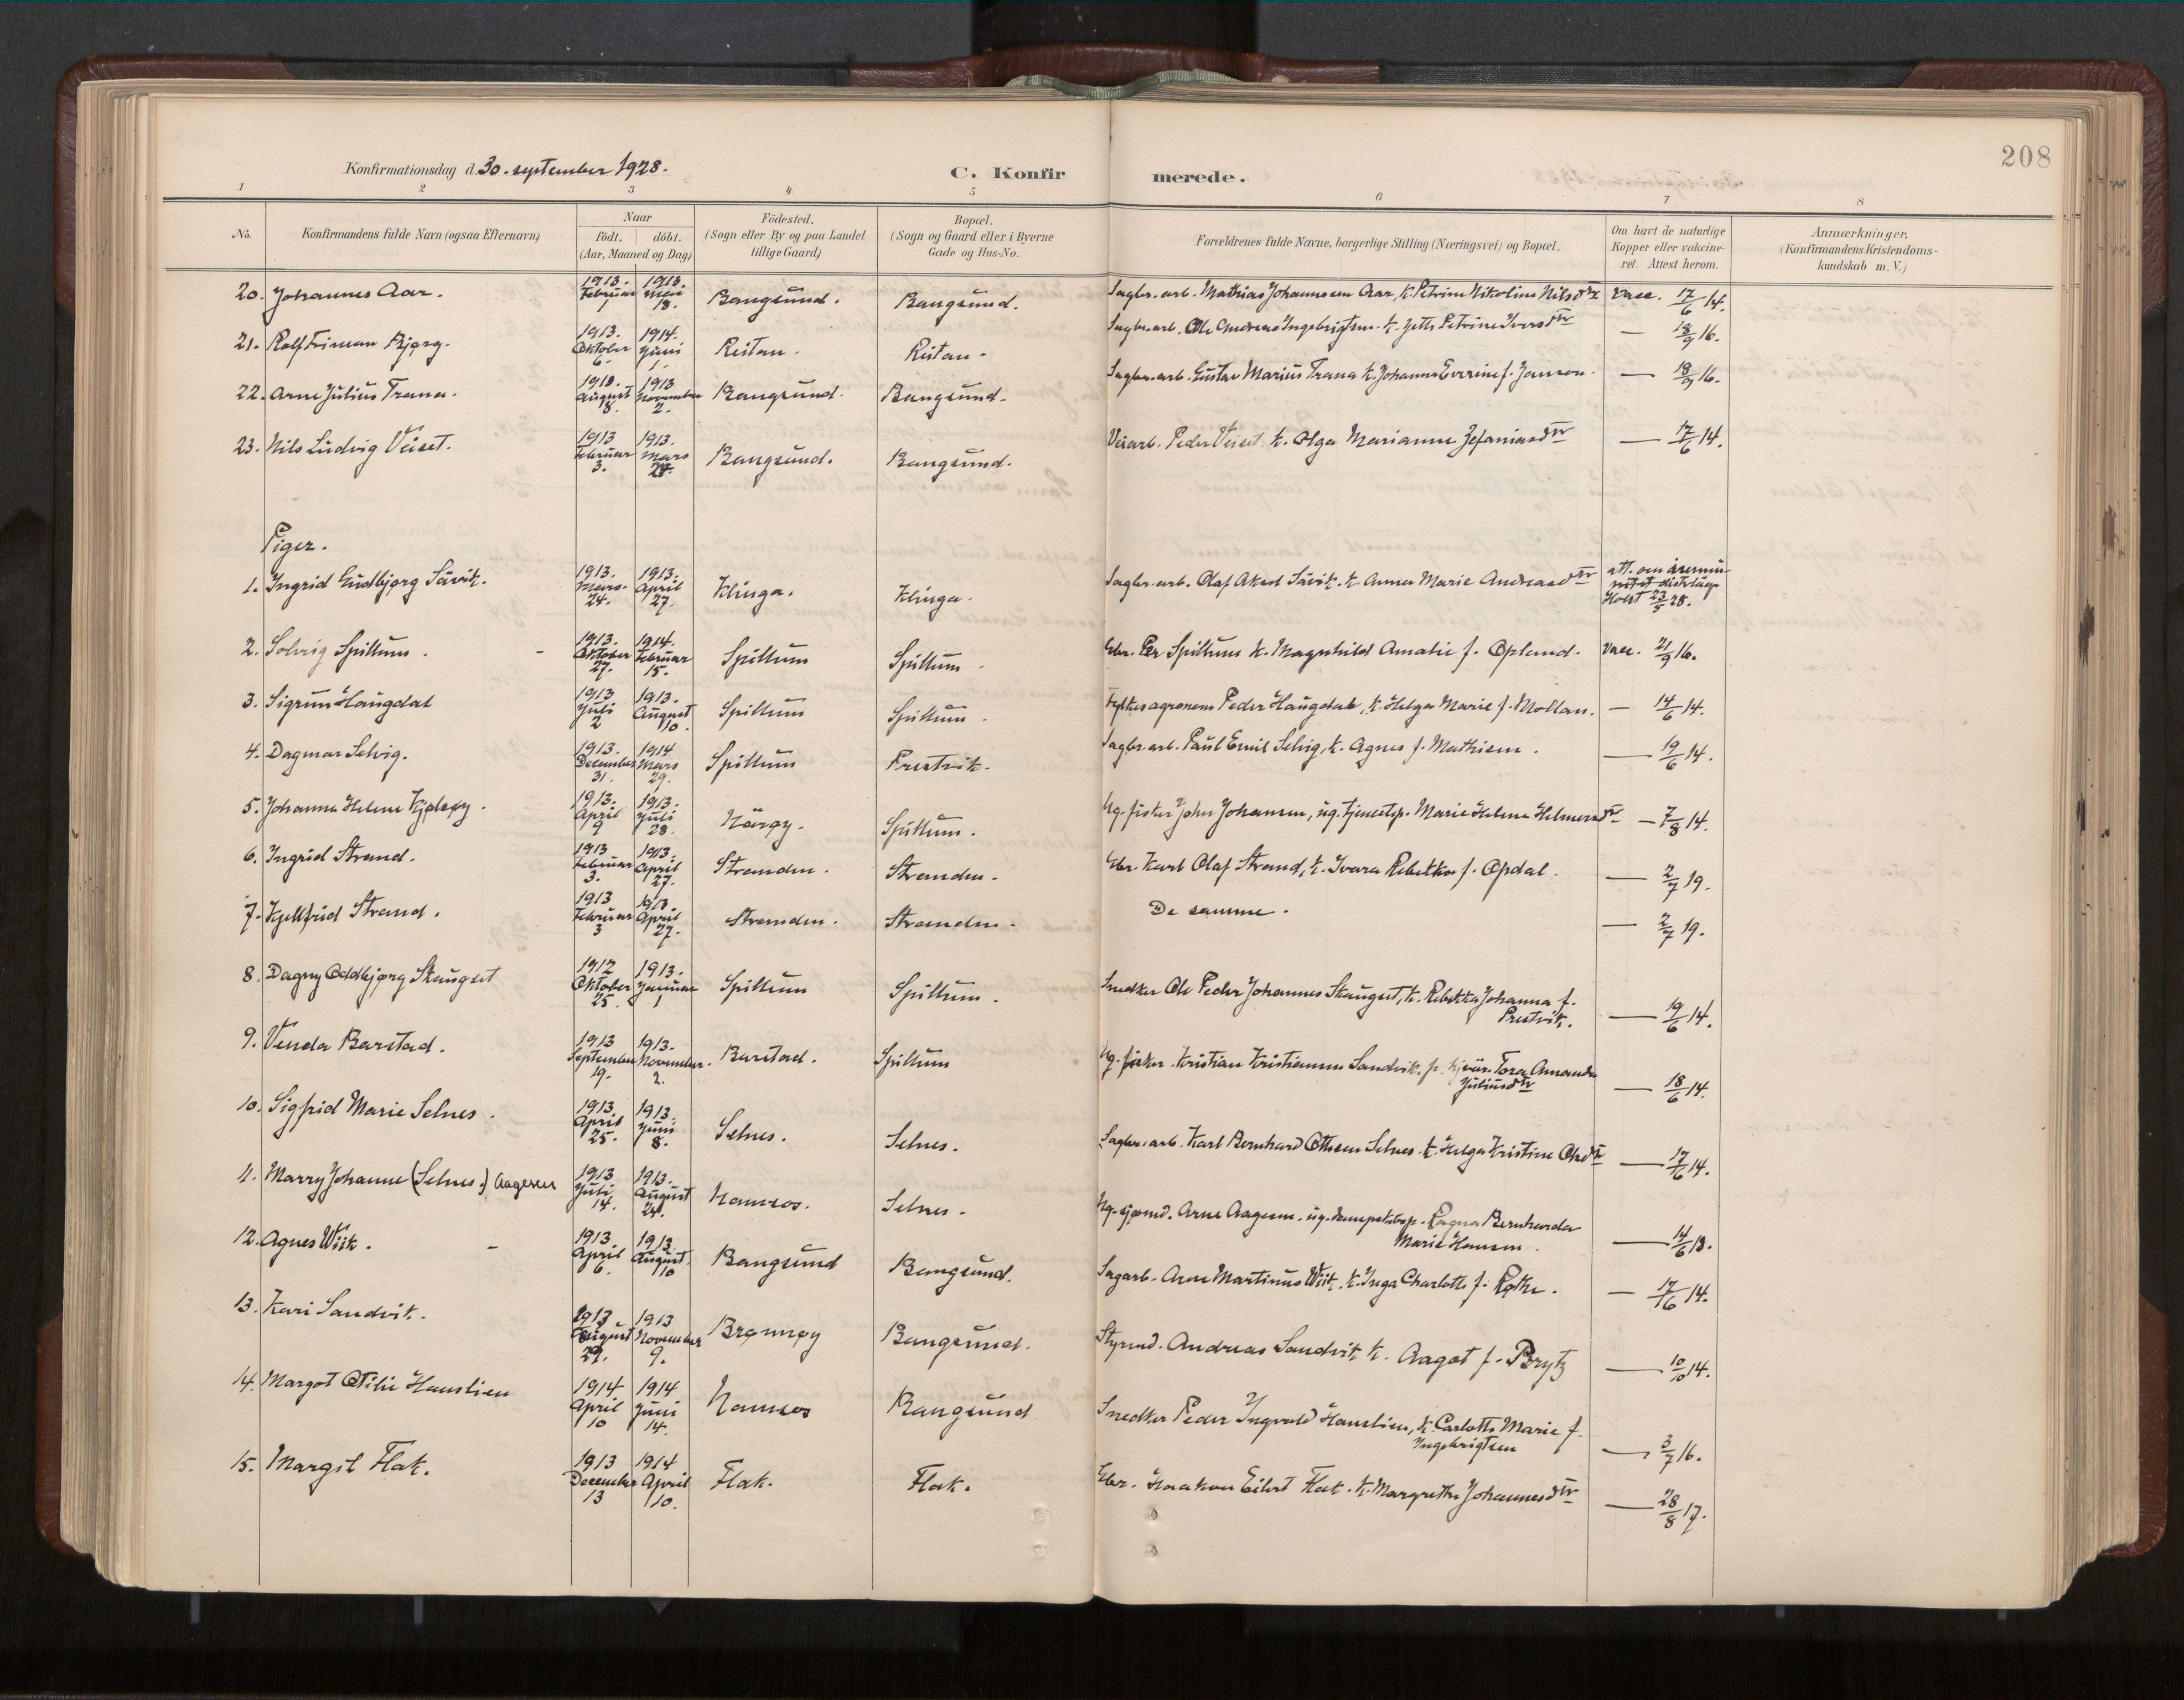 208
Konfirmationsdag d. 30. september 1928.
C. Konfirmerede.
1 2 3 4 5 6 7 8
No.
Konfirmandens fulde Navn (ogsaa Efternavn)
Naar
födt. döbt.
(Aar, Maaned og Dag)
Födested.
(Sogn eller By og paa Landet
tillige Gaard)
Bopæl.
(Sogn og Gaard eller i Byerne
Gade og Hus-No.
Forældrenes fulde Navne, borgerlige Stilling (Næringsvei) og Bopæl.
Om havt de naturlige
Kopper eller vakcine-
ret. Attest herom.
Anmærkninger,
(Konfirmandens Kristendoms-
kundskab m. V.)
20. Johannes Aar. 1913. Februar 7 1913. Mai 18. Bangsund. Bangsund. Sagbr.arb. Mathias Johannessen Aar, k. Petrine Nikoline Nilsdtr vacc. 17/6 14.
21. Rolf Friman Bjørg. 1913. Oktober 6. 1914. Juni 1. Reitan. Reitan. Sagbr.arb. Ole Andreas Ingebrigtsen. k. Jette Petrine Iversdtr — 18/9 16.
22. Arne Julius Trana. 1913. August 8. 1913 November 2. Bangsund. Bangsund. Sagbr.arb. Gustav Marius Trana k. Johanna Everine f. Janson. — 18/9 16.
23. Nils Ludvig Veiset. 1913 Februar 3. 1913. Mars 24. Bangsund. Bangsund. Veiarb. Peder Veiset. k. Olga Marianne Zefaniasdtr — 17/6 14.
Piger.
1. Ingrid Gudbjørg Sävik. 1913. Mars. 24. 1913. April 27. Klinga. Klinga. Sagbr.arb. Olaf Aksel Sävik. k. Anna Marie Andreasdtr att. om distrlæge Holst 23/5 28.
2. Solveig Spillum. 1913. Oktober 27. 1914. Februar 15. Spillum Spillum. Gbr. Per Spillum k. Magnhild Amalie f. Opland. vacc. 21/9 16.
3. Sigrun Haugdal 1913 Juli 2 1913. August 10. Spillum Spillum. Fylkesagronom Peder Haugdal, k. Helga Marie f. Mollan. — 14/6 14.
4. Dagmar Selvig. 1913. December 31. 1914 Mars 29. Spillum Prestvik. Sagbr.arb. Paul Emil Selvig, k. Agnes f. Mathisen. — 19/6 14.
5. Johanna Helene Kjølsøy. 1913. April 9 1913. Juli 28. Närøy. Spillum. Ug. fisker John Johansen, ug. tjenestep. Marie Helene Helmersdtr — 7/8 14.
6. Ingrid Strand. 1913 Februar 3. 1913. April 27. Stranden. Stranden. Gbr. Karl Olaf Strand, k. Ivara Rebekka f. Opdal. — 2/7 19.
7. Kjellfrid Strand. 1913 Februar 3 1913. April 27. Stranden. Stranden. De samme. — 2/7 19.
8. Dagny Oddbjørg Skauget 1912 Oktober 25. 1913. Januar 1 Spillum Spillum. Snedker Ole Peder Johannes Skauget, k. Rebekka Johanna f.
Prestvik. — 19/6 14.
9. Venda Barstad. 1913 September 19. 1913. November. 2. Barstad. Spillum Ug. fisker Kristian Kristiansen Sandvik. Tora Amanda
Juliusdtr — 18/6 14.
10. Sigfrid Marie Selnes. 1913. April 25. 1913. Juni 8. Selnes. Selnes. Sagbr.arb. Karl Bernhard Ottesen Selnes. k. Helga Kristine Olsdtr — 17/6 14.
11. Marry Johanne (Selnes.) Aagesen 1913 Juli 14. 1913. August 24. Namsos. Selnes. Ug. sjømd. Arne Aagesen. ug. Ragna Bernharda
Marie Hansen. — 14/6 13.
12. Agnes Wiik. 1913. April 6. 1913 August. 10 Bangsund Bangsund. Sagarb. Arne Martinus Wiik. k. Inga Charlotte f. Røthe. — 17/6 14.
13. Kari Sandvik. 1913 August 29. 1913 November 9. Brønnøy Bangsund. Styrmd. Andreas Sandvik k. Aagot f. Brytz — 10/10 14.
14. Margot Otilie Hanslien 1914 April 10 1914 Juni 14. Namsos Bangsund Snedker Peder Ingvald Hanslien, k. Carlotte Marie f.
Ingebrigtsen — 3/7 16.
15. Margit Flak. 1913 December 13 1914 April 10. Flak. Flak. Gbr. Haakon Eilert Flak. k. Margrethe Johannesdtr — 28/8 17.